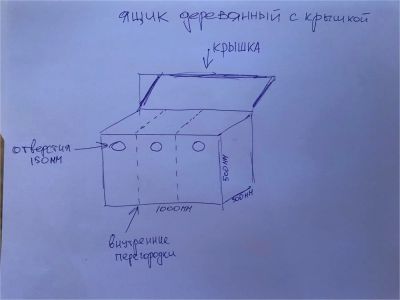 ящик деревянный с крышкой
крышка
отверстия
150мм
500мм
500мм
1000мм
внутренние
перегородки